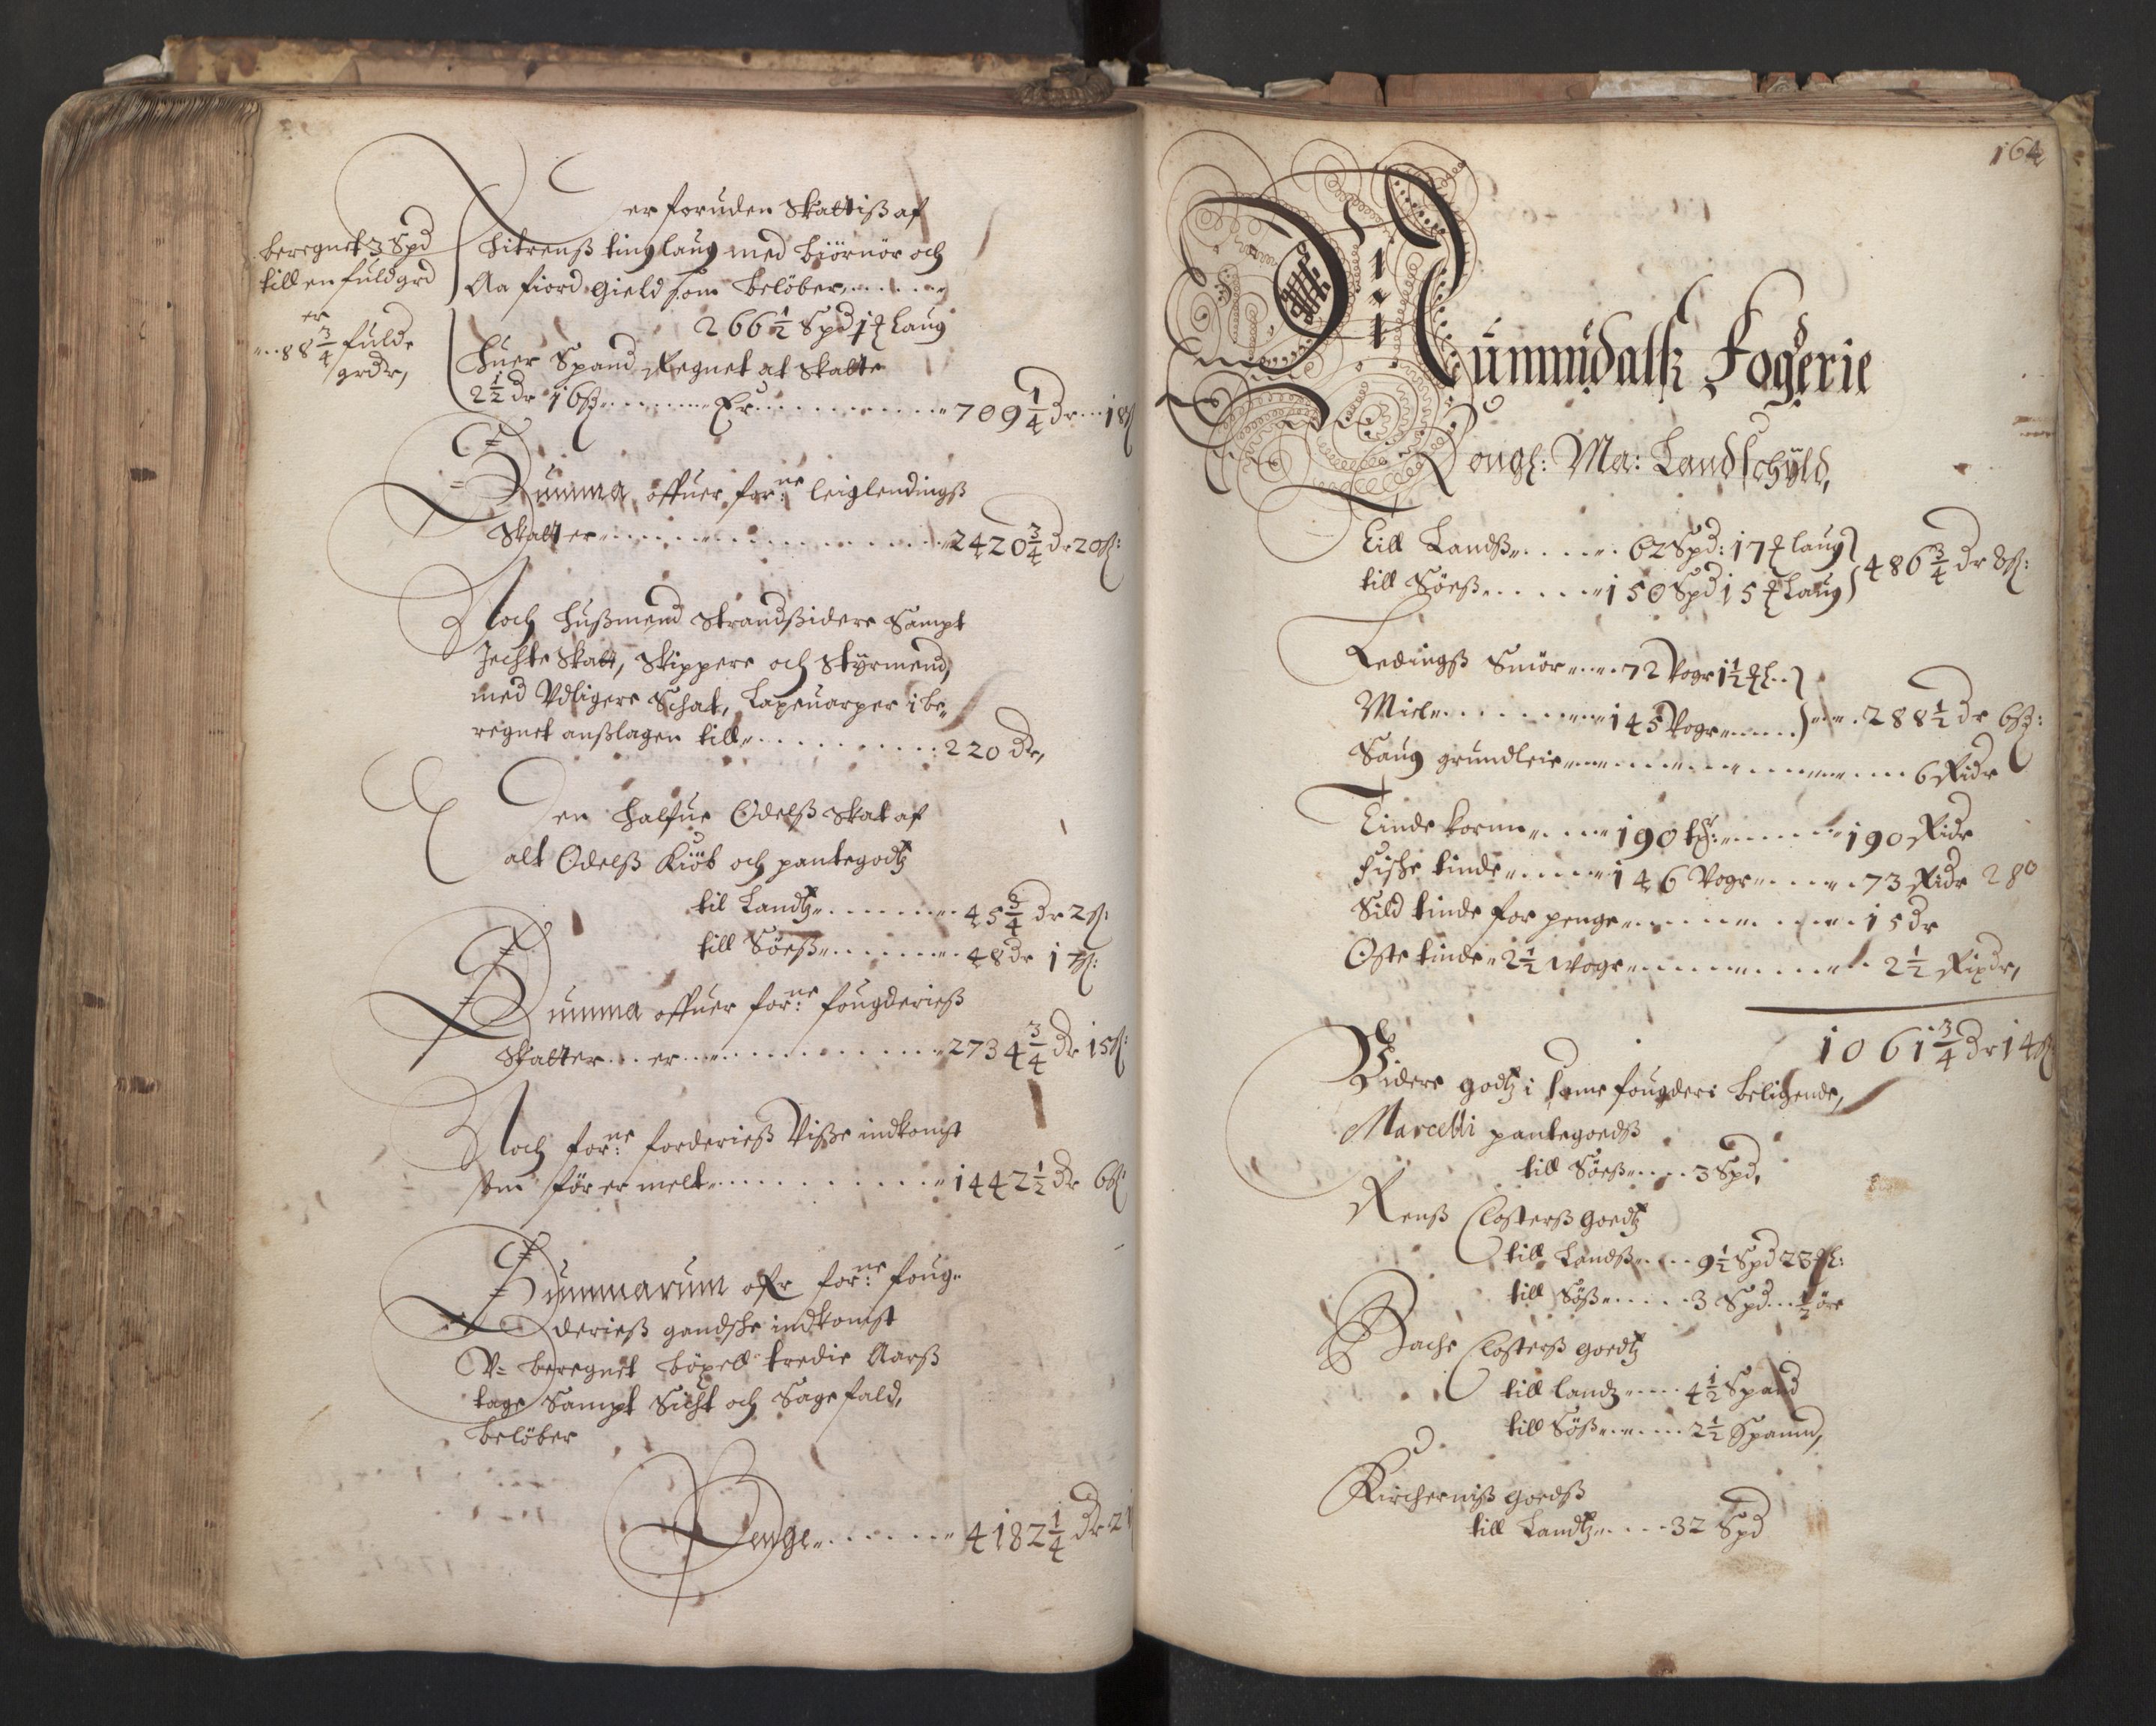 er foruden Skattiß af
beregnet 3 Spd
till en fuldgrd
er
88 3/4 fulde
grdr,
Hitrenß tinglaug med Biörnör och
Aa fiord Gield som beløber
266 1/2 Spd 1 laug
Huer Spand Regnet at skatte
2 1/2 dr 16ß Er 709 1/4 dr 18ß
Summa offuer for:ne leiglendingß
Skatt er 2420 3/4 dr 20ß:
Noch Hußmend Strandßidere Sampt
Jechte Skatt, Skippere och Styrmend,
med Vdligere Schat, Lapeuarper i be-
regnet anßlagen till 220 dr,
Den halfue Odelß Skat af
alt Odelß Kiöb och pantegodtz
til Landtz 45 3/4 dr 2ß:
till Söeß 48 dr 1ß:
Summa offuer for:ne fougderieß
Skatter er 2734 3/4 dr 15ß:
Noch for:ne forderieß Visse indkomst
som för er melt 1442 1/2 dr 6ß
Summarum ofr for:ne foug-
derieß gandsche indkomst
V= beregnet böxell tredie Aarß
tage Sampt Sicht och Sagefald,
beløber
Penge 4182 1/4 dr 21
164
Nummedalß Fogderie
Kongl: Ma: Landschyld,
Till Landß 62 Spd: 17 laug
till Söeß 150 Spd 15 laug
486 3/4 dr 8ß:
Ledingß Smör 72 Vogr 1 1/2
Miel 145 Vogr
288 1/2 dr 6ß:
Saug grundleie 6 Ridr
Tinde korn 190 tr: 190 Ridr
Fische tinde 146 Vogr 73 Ridr 280
Sild tinde for penge 15 dr
Oste tinde 2 1/2 Vogr 2 1/2 Rixdr,
1061 3/4 dr 14ß
Videre godtz i same fougderi beligende,
Marcelli pantegoedß
till Söeß 3 Spd,
Renß Closterß goedtz
till Landß 9 1/2 Spd 23
till Söß 3 Spd 1/2 öre
Bache Closterß goedtz
till landz 4 1/2 Spand
till Söß 2 1/2 Spannd,
Kircherniß goedß
till Landtz 32 Spd